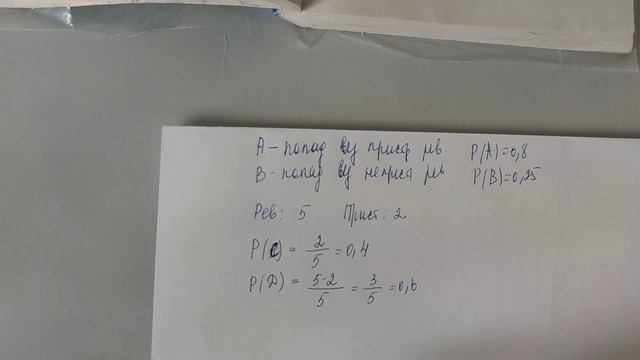 А – попад из присп рев. P(A)=0,8
B – попад из неприсп рев P(B)=0,25
Рев: 5 Прист: 2
P(C) = 2/5 = 0,4
P(D) = 5-2/5 = 3/5 = 0,6